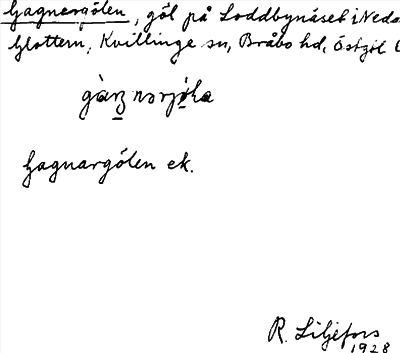 Gagnargölen, göl på Loddbynäset i Neda
Glottern, Kvillinge sn, Bråbo hd, Östgöl
Gagnargölen ek.
R. Liljefors
1928